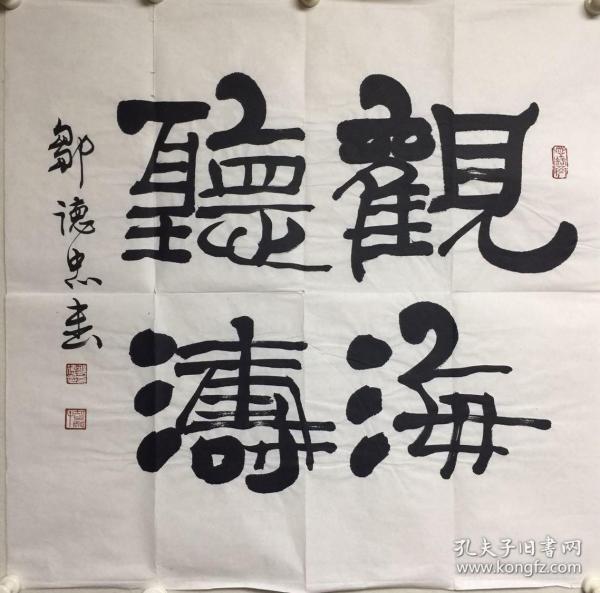 觀海
聽濤
鄒德忠書
孔夫子旧书网
www.kongfz.com